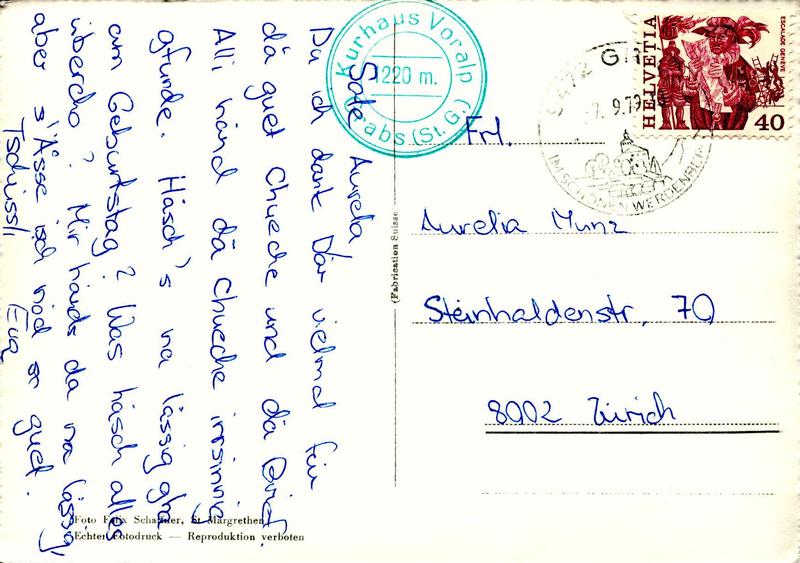 Sale Aurelia,
Du ich dank Där vielmal für
dä guet Chueche und dä Brief.
Alli händ dä Chueche irrsinnig
gfunde. Häsch's na lässig gha
am Geburtstag? Was häsch alles
übercho? Mir händs da na lässig,
aber s'Ässe isch nöd so guet.
Tschüssli
Eva
Kurhaus Voralp
1220 m.
Grabs (St. G.)
(Fabrication Suisse
9472
9.79
IM SCHÖNEN WERDENBERG
HELVETIA
ESCALADE GENÈVE
40
Frl.
Aurelia Munz
Steinhaldenstr. 70
8002 Zürich
Foto Felix Schadler, St. Margrethen
Echter Fotodruck — Reproduktion verboten